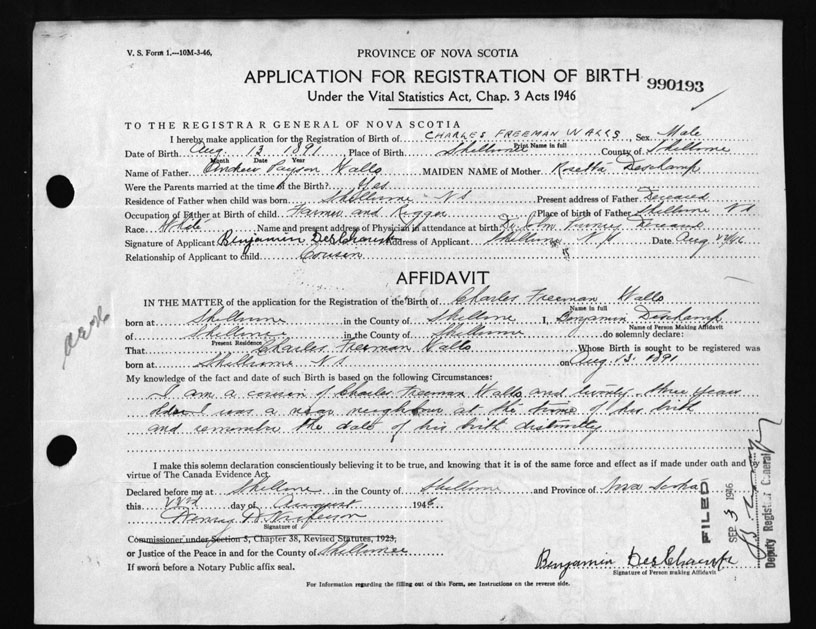 V. S. Form 1.—10M-3-46.
PROVINCE OF NOVA SCOTIA
APPLICATION FOR REGISTRATION OF BIRTH 990193
Under the Vital Statistics Act, Chap. 3 Acts 1946
TO THE REGISTRAR GENERAL OF NOVA SCOTIA
I hereby make application for the Registration of Birth of CHARLES FREEMAN WALLS, Sex Male
Print Name in full
Date of Birth Aug. 13 1891 Place of Birth Shelburne County of Shelburne
Month Date Year
Name of Father Andrew Payson Walls MAIDEN NAME of Mother Rosetta Deschamp
Were the Parents married at the time of Birth? Yes
Residence of Father when child was born Shelburne NS Present address of Father Deceased
Occupation of Father at Birth of child Farmer and Rigger Place of birth of Father Shelburne NS
Race White Name and present address of Physician in attendance at birth: Dr. Deceased
Signature of Applicant Benjamin DesChamp Address of Applicant Shelburne N.S Date Aug /46
Relationship of Applicant to child Cousin
AFFIDAVIT
IN THE MATTER of the application for the Registration of the Birth of Charles Freeman Walls
Name in full
born at Shelburne in the County of Shelburne I, Benjamin Deschamp
Name of Person Making Affidavit
of Shelburne in the County of Shelburne do solemnly declare:
Present Residence
That Charles Freeman Walls Whose Birth is sought to be registered was
born at Shelburne NS on Aug. 13. 1891
My knowledge of the fact and date of such Birth is based on the following Circumstances:
I am a cousin of Charles Freeman Walls and twenty three years
older I was a near neighbour at the time of his birth
and remember the date of his birth distinctly
I make this solemn declaration conscientiously believing it to be true, and knowing that it is of the same force and effect as if made under oath and by
virtue of The Canada Evidence Act.
Declared before me at Shelburne in the County of Shelburne and Province of Nova Scotia
this 22nd day of August 1946
Signature of
Commissioner under Section 3, Chapter 38, Revised Statutes, 1923,
or Justice of the Peace in and for the County of Shelburne
If sworn before a Notary Public affix seal.
Benjamin DesChamp
Signature of Person making Affidavit
For Information regarding the filling out of this Form, see Instructions on the reverse side.
FILED
SEP 3 1946
Deputy Registrar General